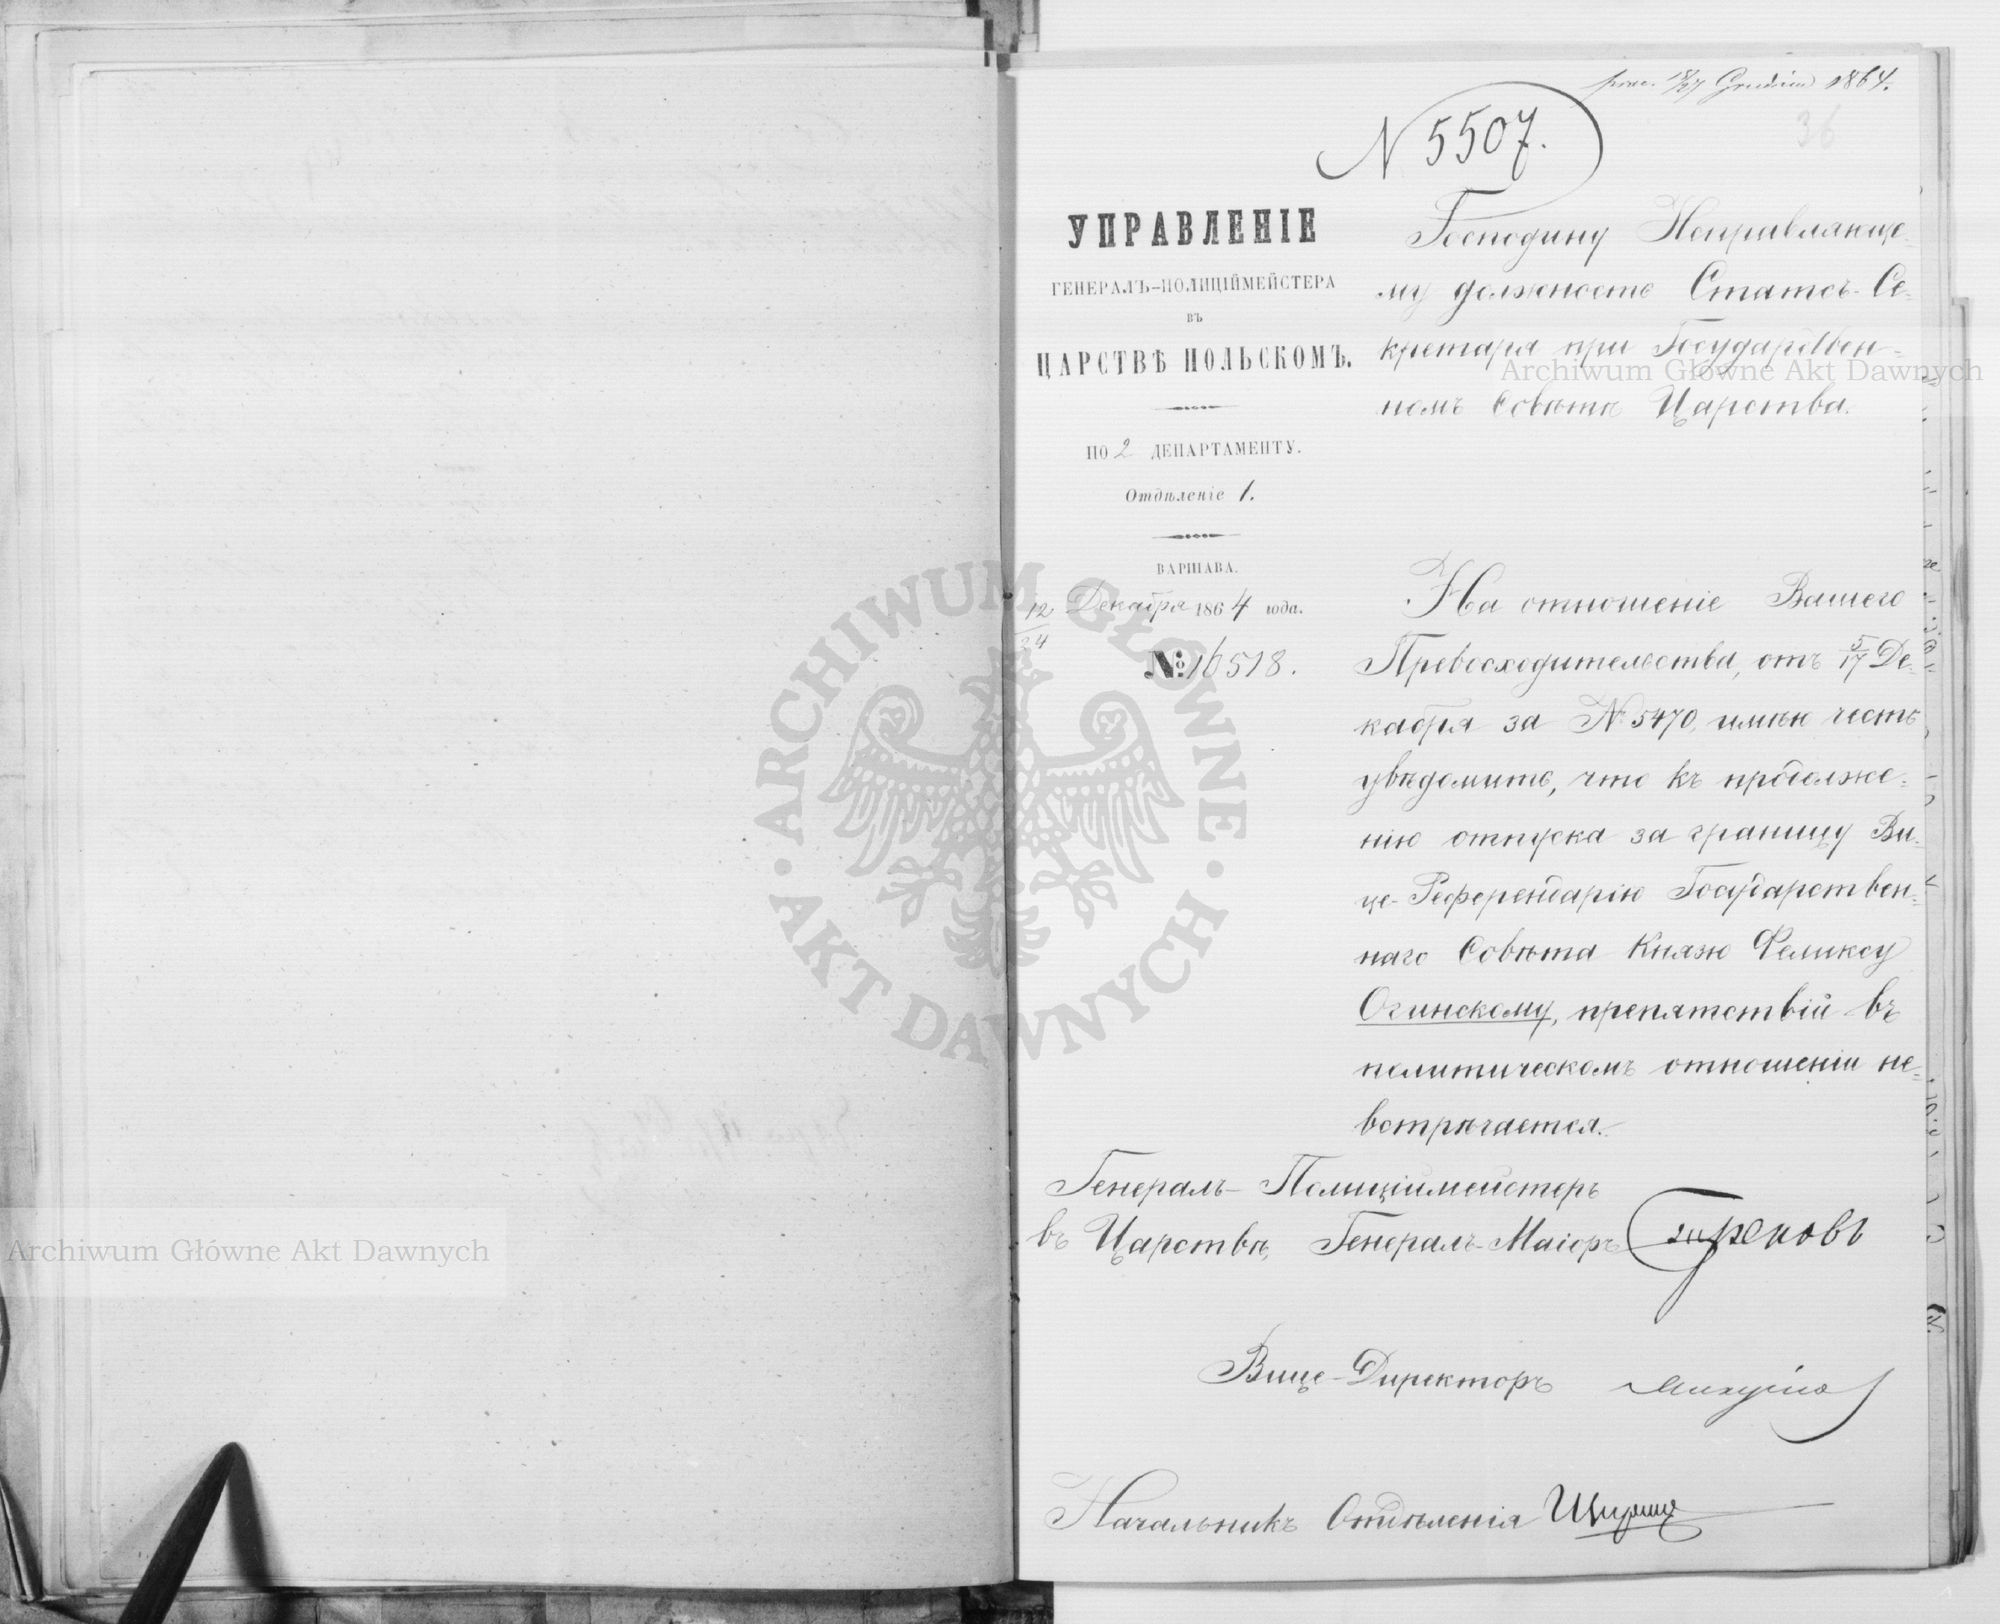 1864.
36
N 5507.
УПРАВЛЕНІЕ
ГЕНЕРАЛЪ-ПОЛИЦІЙМЕЙСТЕРА
ВЪ
ЦАРСТВѢ ПОЛЬСКОМЪ.
ПО 2 ДЕПАРТАМЕНТУ.
Отдѣленіе 1.
ВАРШАВА.
12/24 Декабря 1864 года.
№ 16518.
Господину Исправляюще-
му должность Статсъ-Се-
кретаря при Государствен-
номъ Совѣтѣ Царства.
На отношеніе Вашего
Превосходительства, отъ 5/17 Де-
кабря за № 5470, имѣю честь
увѣдомить, что къ продолже-
нію отпуска за границу Ви-
це-Референдарію Государствен-
наго Совѣта Князю Феликсу
Огинскому, препятствій въ
политическомъ отношеніи не-
встрѣчается.
Генералъ-Полиціймейстеръ
въ Царствѣ, Генералъ-Маіоръ Треповъ
Вице-Директоръ
Начальникъ Отдѣленія
Archiwum Główne Akt Dawnych
ARCHIWUM GŁÓWNE · AKT DAWNYCH ·
Archiwum Główne Akt Dawnych